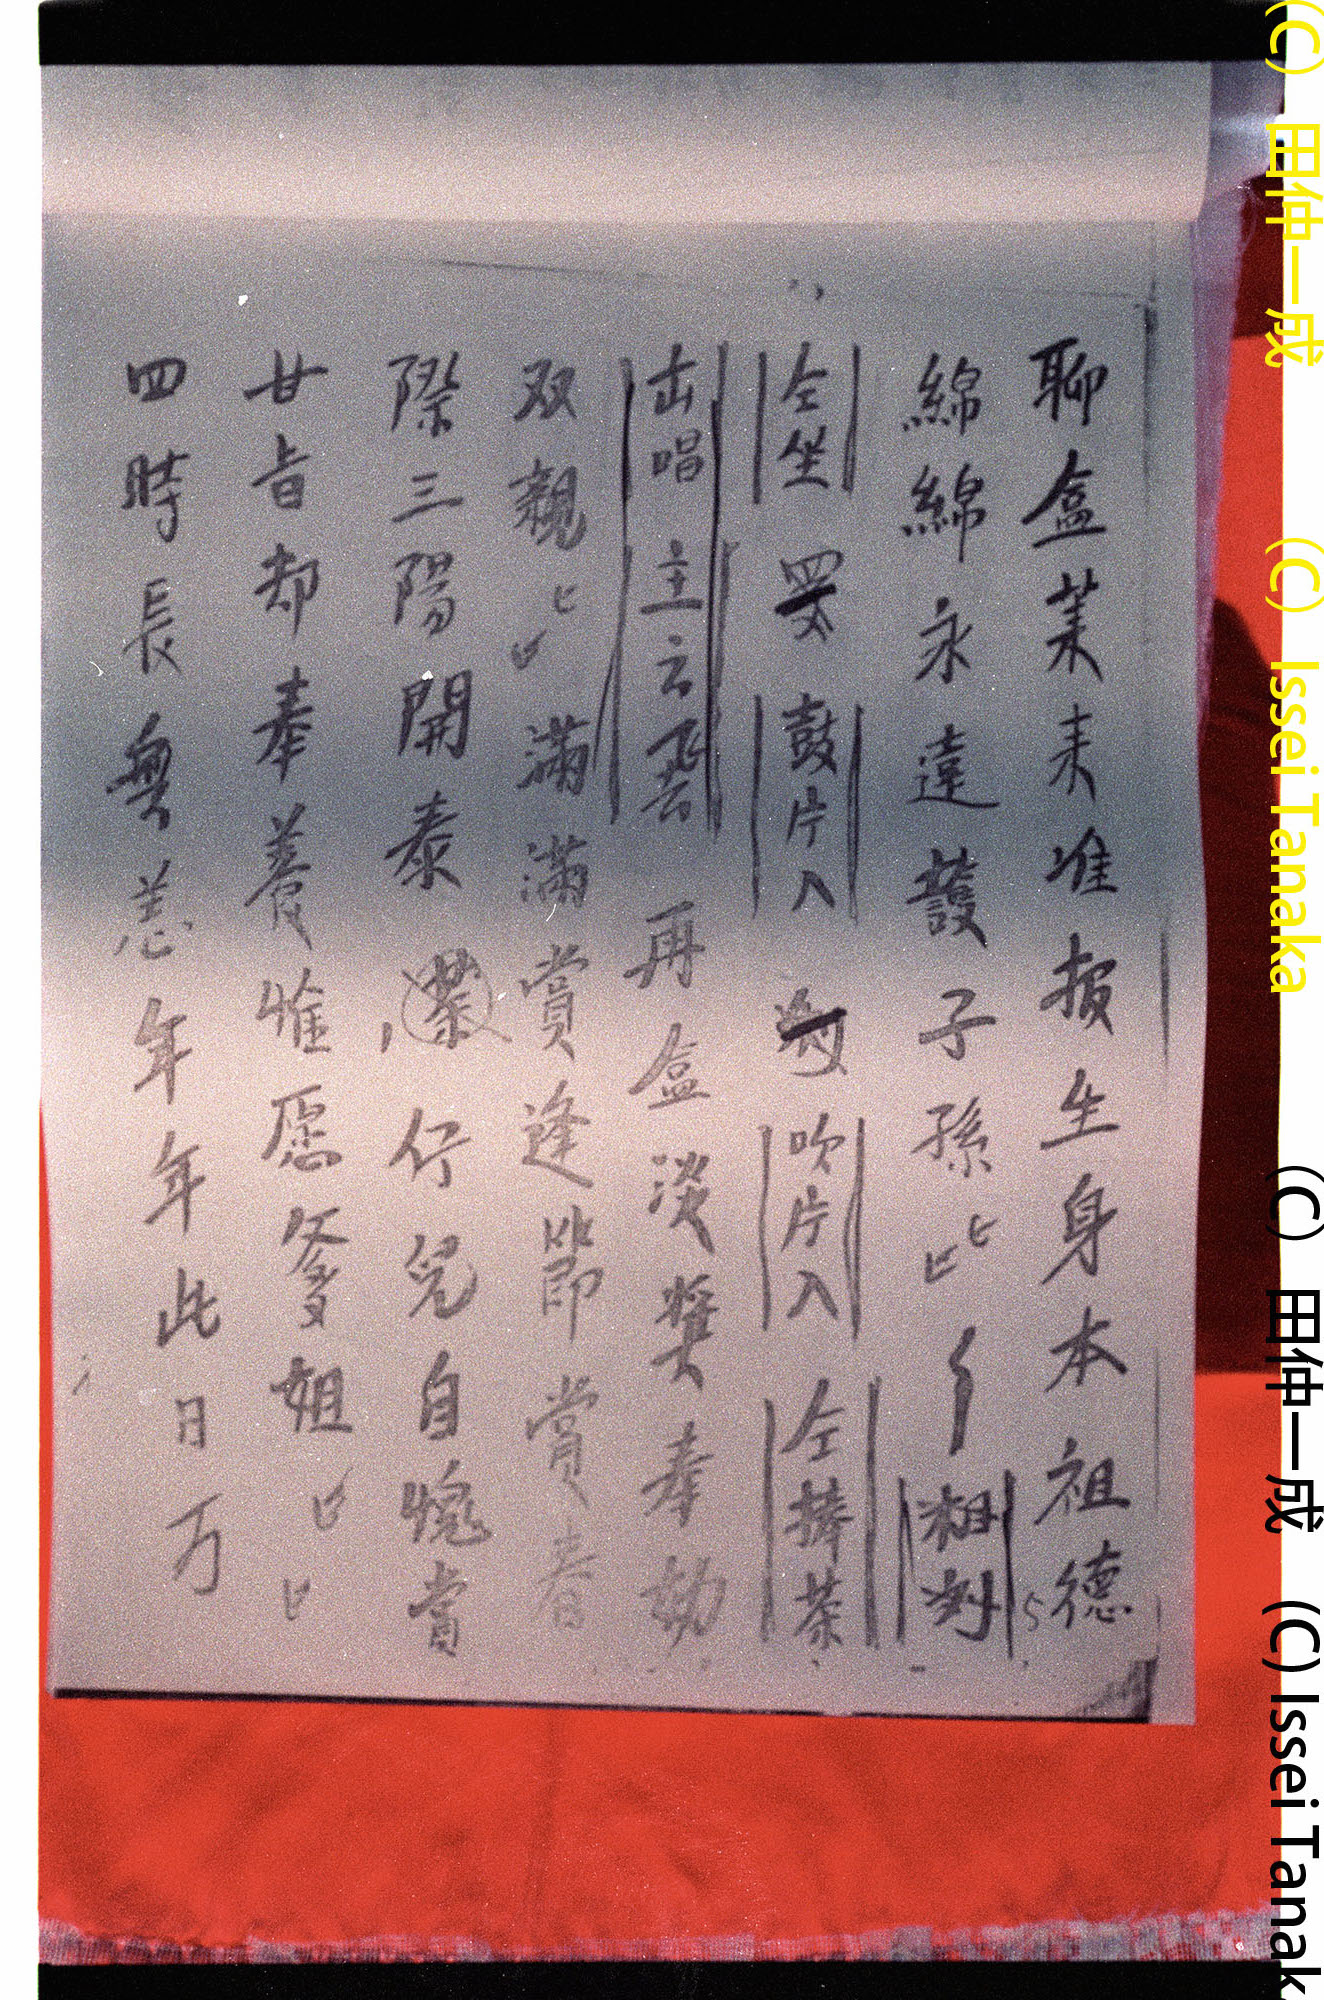 聊盒菜来准报生身本祖德
綿綿永遠護子孫 匕匕 粗刘
仝坐 鼓片入 吹片入 仝捧茶
出唱 主云 再盒淡 奉勧
双親 匕匕 滿滿賞逢節賞春
際三陽開泰 行児自愧賞
廿旨却奉養惟愿爹姐 匕匕
四時長無恙年年此日万
(C) 田仲一成 (C) Issei Tanaka
(C) 田仲一成 (C) Issei Tanak